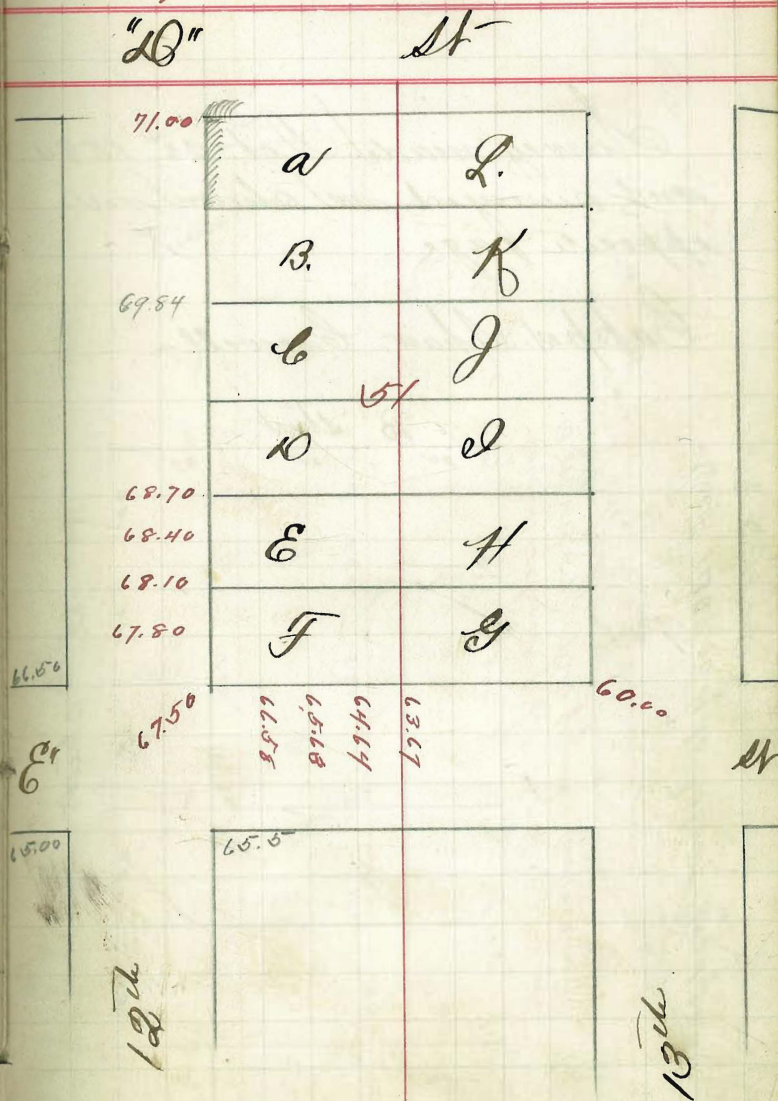 "D" St
71.00
a L.
B. K
69.84
C J
51
D I
68.70
68.40
E H
68.10
67.80
F G
66.50
67.50
66.58
65.68
64.64
63.67
60.00
E" St
65.00
65.5
12th
13th